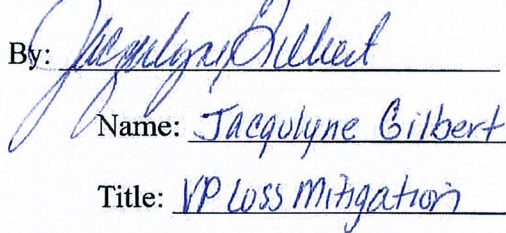 By: Jacqulyne Gilbert
Name: Jacqulyne Gilbert
Title: VP Loss Mitigation